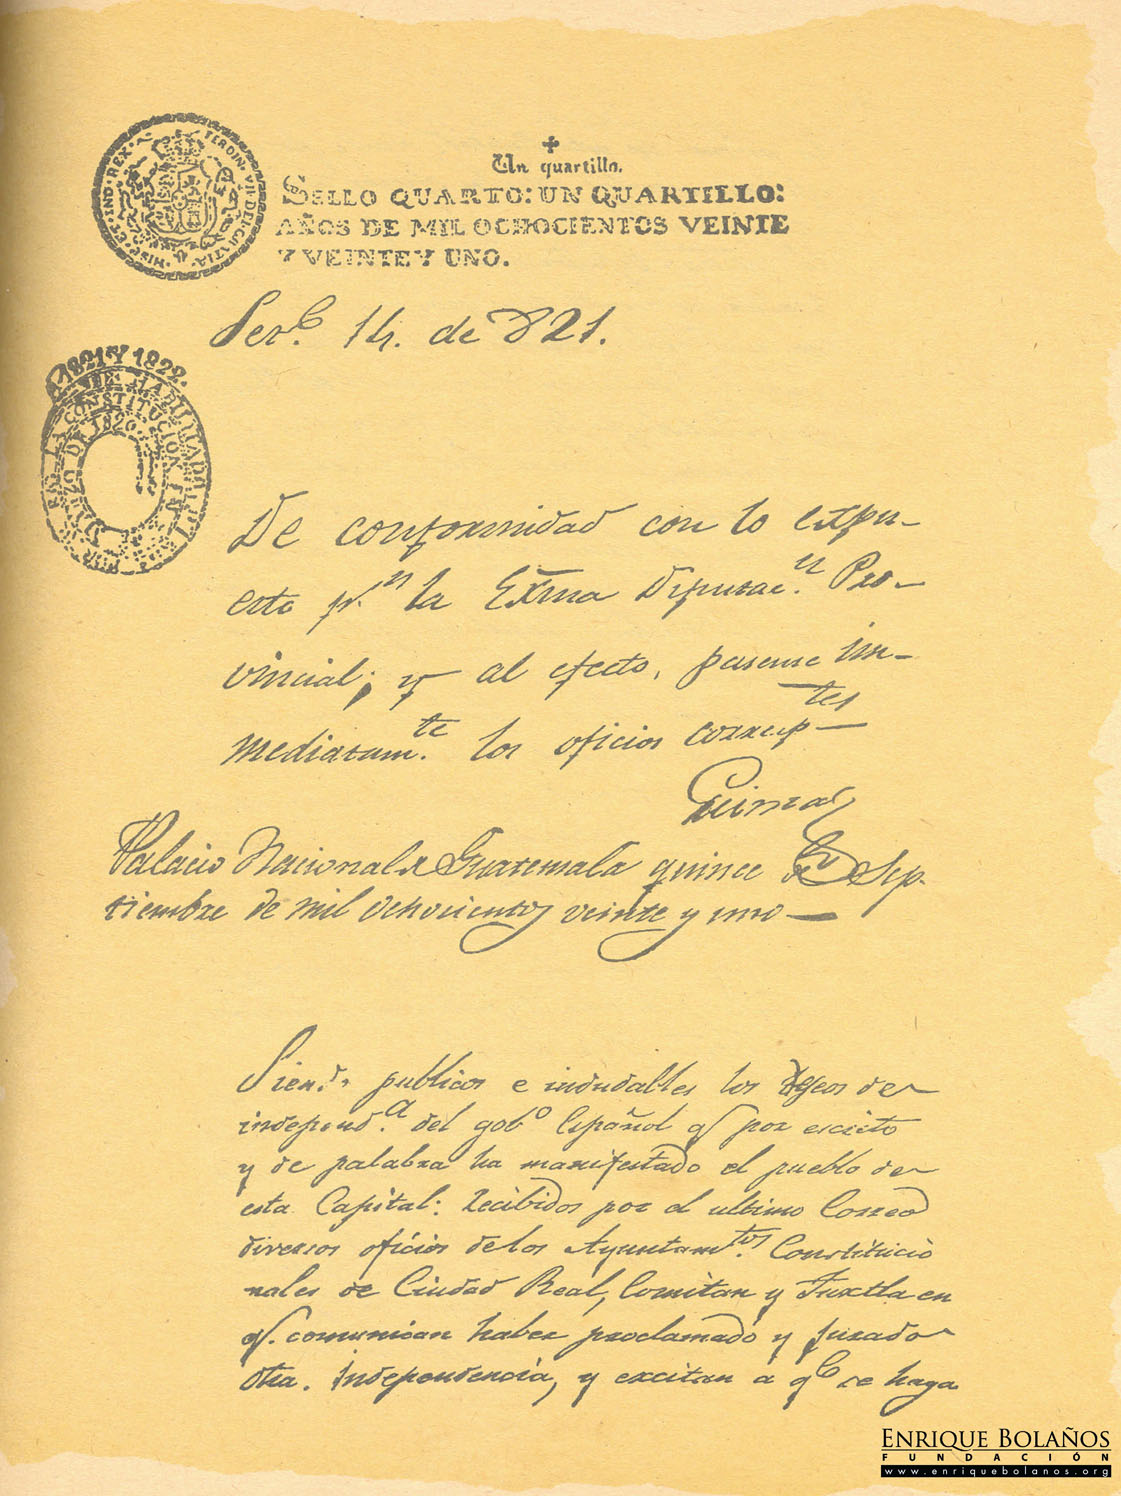 HISP. ET IND. REX. FERDIN. VII. DEI. GRATIA.
Un quartillo.
SELLO QUARTO: UN QUARTILLO:
AÑOS DE MIL OCHOCIENTOS VEINTE
Y VEINTE Y UNO.
14. de 821.
1821 Y 1822.
HABILITADO
LA CONSTITUCION
DE 1820.
De conformidad con lo expu-
esto pr.n la Exma Diputac.n Pro-
vincial; y al efecto, pasense in-
mediatam.te los oficios corresp.tes
Palacio Nacional de Guatemala quince de Sep-
tiembre de mil ochocientos veinte y uno—
Siend.o publicos e indudables los deseos de
independ.a del gob.o Español q. por escrito
y de palabra ha manifestado el pueblo de
esta Capital: recibidos por el ultimo Correo
diversos oficios de los Ayuntam.tos Constitucio
nales de Ciudad Real, Comitan y Tuxtla en
q. comunican haber proclamado y jurado
dha. Independencia, y excitan a q.e se haga
ENRIQUE BOLAÑOS
FUNDACIÓN
www.enriquebolanos.org